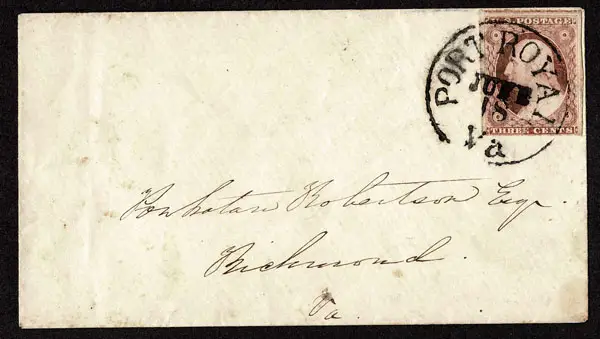 U.S. POSTAGE
THREE CENTS
PORT ROYAL
JUNE
18
Va
Powhatan Robertson Esqr.
Richmond.
Va.